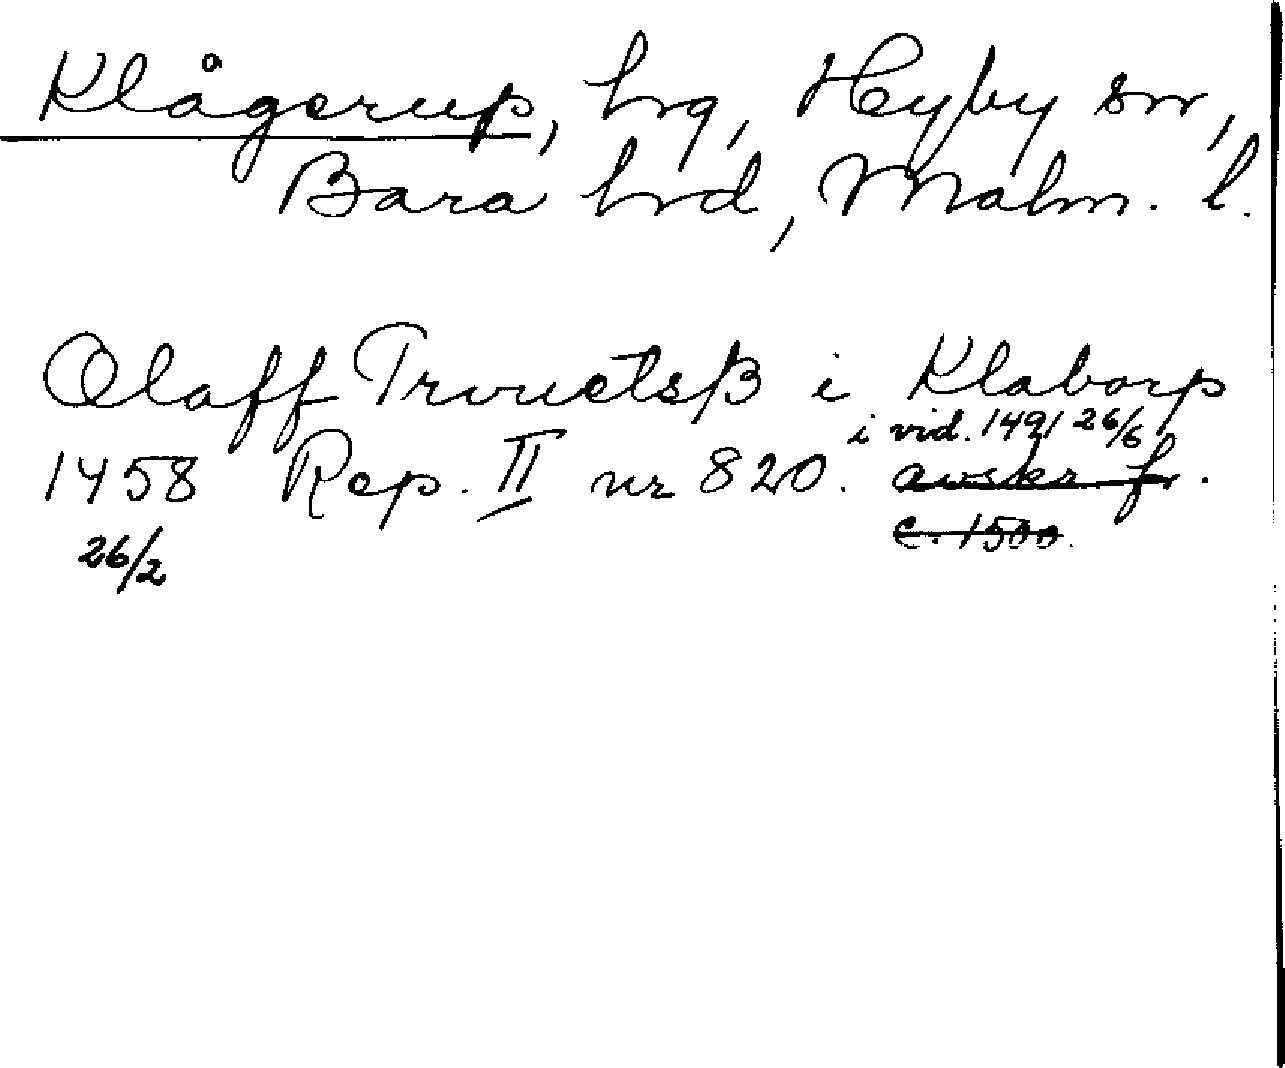 Klågerup, hg, Hyby sn,
Bara hd, Malm. l.
Olaff Trouetsß i Klaborp
i vid. 1491 26/6
1458 Rep. II nr 820. avskr fr.
26/2
c. 1500.